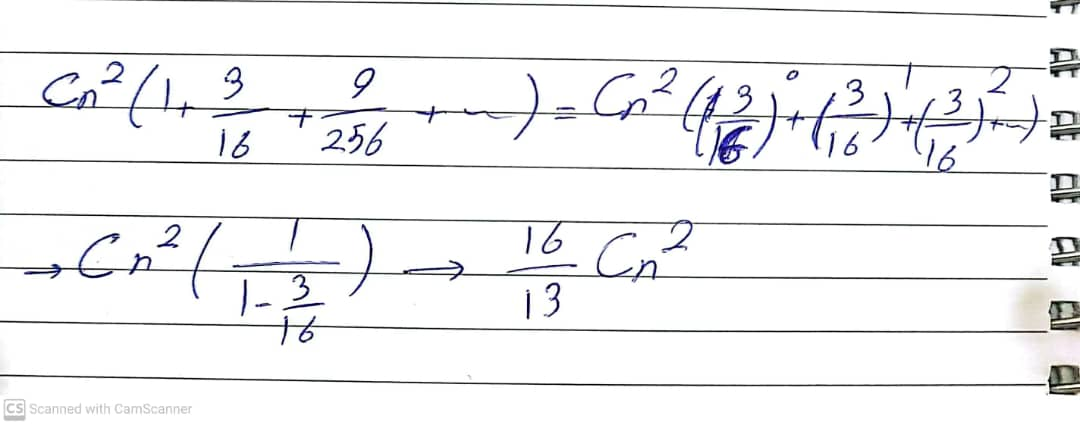 Cn²(1+ 3/16 + 9/256 + ...) = Cn²((3/16)⁰+(3/16)¹+(3/16)²+...)
→ Cn²(1/(1-3/16)) → 16/13 Cn²
CS Scanned with CamScanner